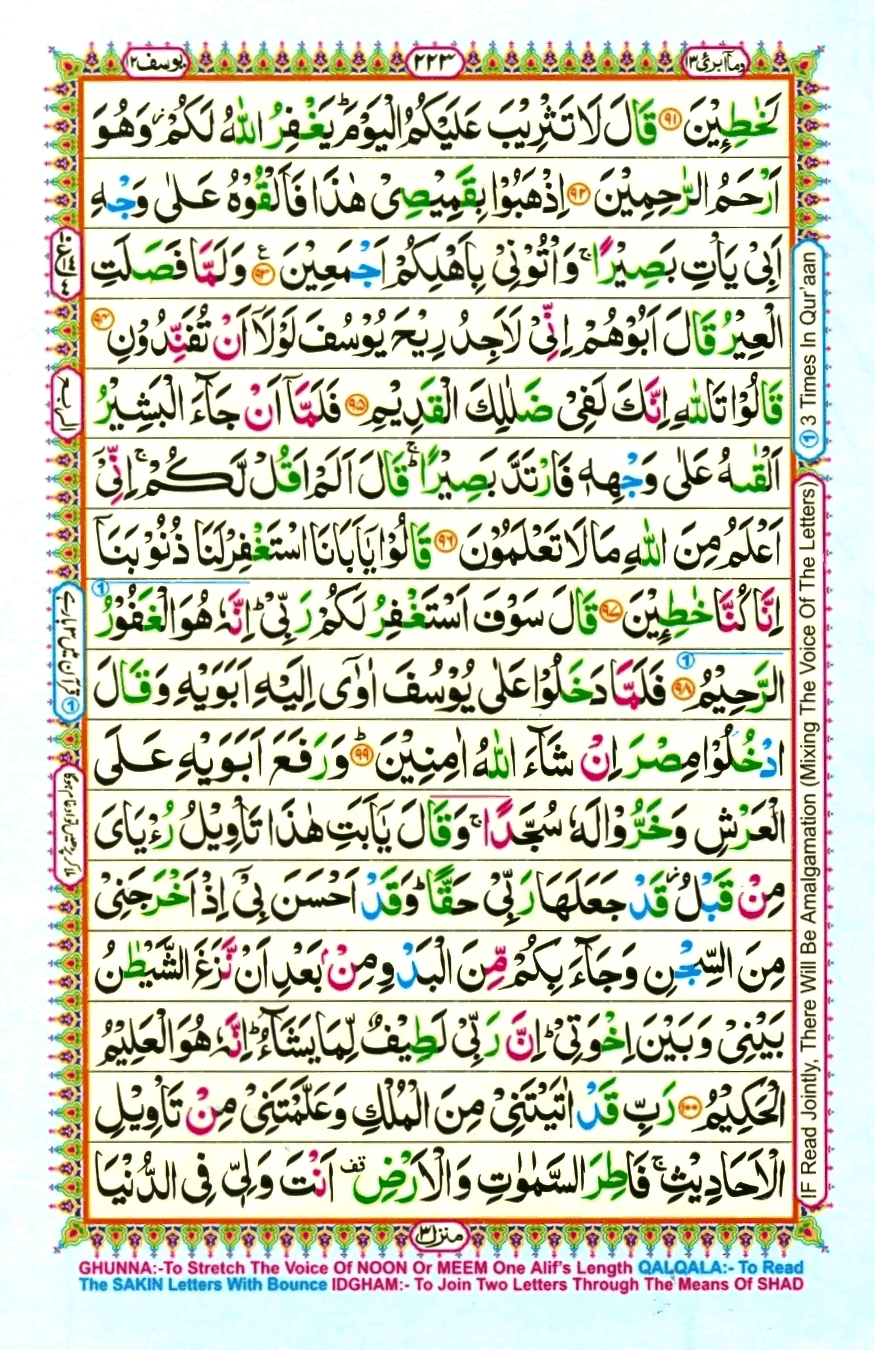 وما ابرئ ۱۳
۲۲۳
یوسف ۱۲
لَخٰطِـِٕیْنَ ۹۱ قَالَ لَا تَثْرِیْبَ عَلَیْكُمُ الْیَوْمَ ؕ یَغْفِرُ اللّٰهُ لَكُمْ ؗ وَهُوَ
اَرْحَمُ الرّٰحِمِیْنَ ۹۲ اِذْهَبُوْا بِقَمِیْصِیْ هٰذَا فَاَلْقُوْهُ عَلٰی وَجْهِ
اَبِیْ یَاْتِ بَصِیْرًا ۚ وَاْتُوْنِیْ بِاَهْلِكُمْ اَجْمَعِیْنَ ۹۳ ع وَلَمَّا فَصَلَتِ
الْعِیْرُ قَالَ اَبُوْهُمْ اِنِّیْ لَاَجِدُ رِیْحَ یُوْسُفَ لَوْلَاۤ اَنْ تُفَنِّدُوْنِ ۹۴
قَالُوْا تَاللّٰهِ اِنَّكَ لَفِیْ ضَلٰلِكَ الْقَدِیْمِ ۹۵ فَلَمَّاۤ اَنْ جَآءَ الْبَشِیْرُ
اَلْقٰىهُ عَلٰی وَجْهِهٖ فَارْتَدَّ بَصِیْرًا ۚ قَالَ اَلَمْ اَقُلْ لَّكُمْ ۚ اِنِّیْۤ
اَعْلَمُ مِنَ اللّٰهِ مَا لَا تَعْلَمُوْنَ ۹۶ قَالُوْا یٰۤاَبَانَا اسْتَغْفِرْلَنَا ذُنُوْبَنَاۤ
اِنَّا كُنَّا خٰطِـِٕیْنَ ۹۷ قَالَ سَوْفَ اَسْتَغْفِرُ لَكُمْ رَبِّیْ ؕ اِنَّهٗ هُوَ الْغَفُوْرُ
الرَّحِیْمُ ۹۸ فَلَمَّا دَخَلُوْا عَلٰی یُوْسُفَ اٰوٰۤی اِلَیْهِ اَبَوَیْهِ وَقَالَ
ادْخُلُوْا مِصْرَ اِنْ شَآءَ اللّٰهُ اٰمِنِیْنَ ؕ ۹۹ وَرَفَعَ اَبَوَیْهِ عَلَی
الْعَرْشِ وَخَرُّوْا لَهٗ سُجَّدًا ۚ وَقَالَ یٰۤاَبَتِ هٰذَا تَاْوِیْلُ رُءْیَایَ
مِنْ قَبْلُ ؗ قَدْ جَعَلَهَا رَبِّیْ حَقًّا ؕ وَقَدْ اَحْسَنَ بِیْۤ اِذْ اَخْرَجَنِیْ
مِنَ السِّجْنِ وَجَآءَ بِكُمْ مِّنَ الْبَدْوِ مِنْۢ بَعْدِ اَنْ نَّزَغَ الشَّیْطٰنُ
بَیْنِیْ وَبَیْنَ اِخْوَتِیْ ؕ اِنَّ رَبِّیْ لَطِیْفٌ لِّمَا یَشَآءُ ؕ اِنَّهٗ هُوَ الْعَلِیْمُ
الْحَكِیْمُ ۱۰۰ رَبِّ قَدْ اٰتَیْتَنِیْ مِنَ الْمُلْكِ وَعَلَّمْتَنِیْ مِنْ تَاْوِیْلِ
الْاَحَادِیْثِ ۚ فَاطِرَ السَّمٰوٰتِ وَالْاَرْضِ قف اَنْتَ وَلِیّٖ فِی الدُّنْیَا
الربع
① قرآن میں ۳ بار ہے
① 3 Times In Qur'aan
IF Read Jointly, There Will Be Amalgamation (Mixing The Voice Of The Letters)
منزل ۳
GHUNNA:-To Stretch The Voice Of NOON Or MEEM One Alif's Length QALQALA:- To Read
The SAKIN Letters With Bounce IDGHAM:- To Join Two Letters Through The Means Of SHAD